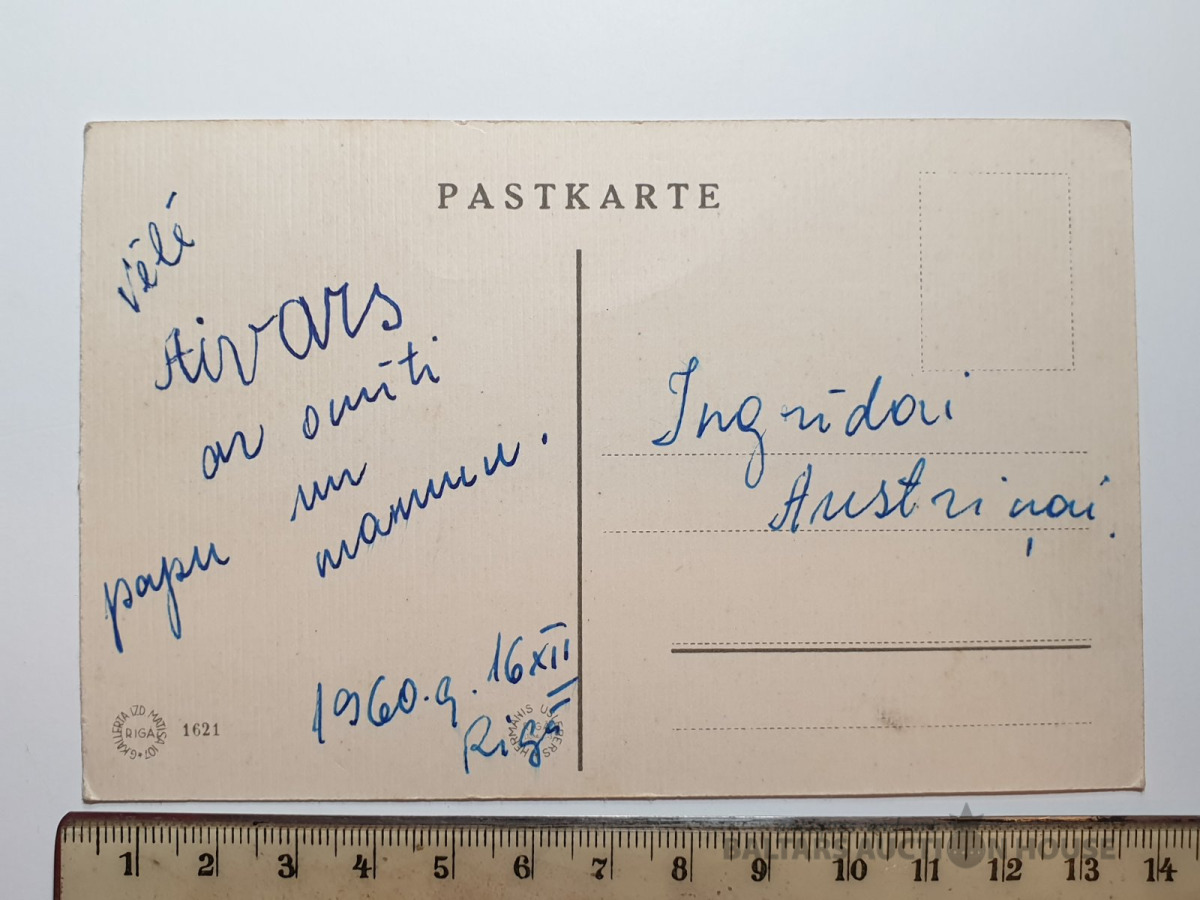 PASTKARTE
vēlē
Aivars
ar omīti
un
papu mammu.
1960.g. 16 XII
Rīgā
Ingrīdai
Austriņai.
G.KALLERTA IZD. MATISA 107
RIGA
1621
HERMANIS
1 2 3 4 5 6 7 8 9 10 11 12 13 14
BALTARS AUCTION HOUSE